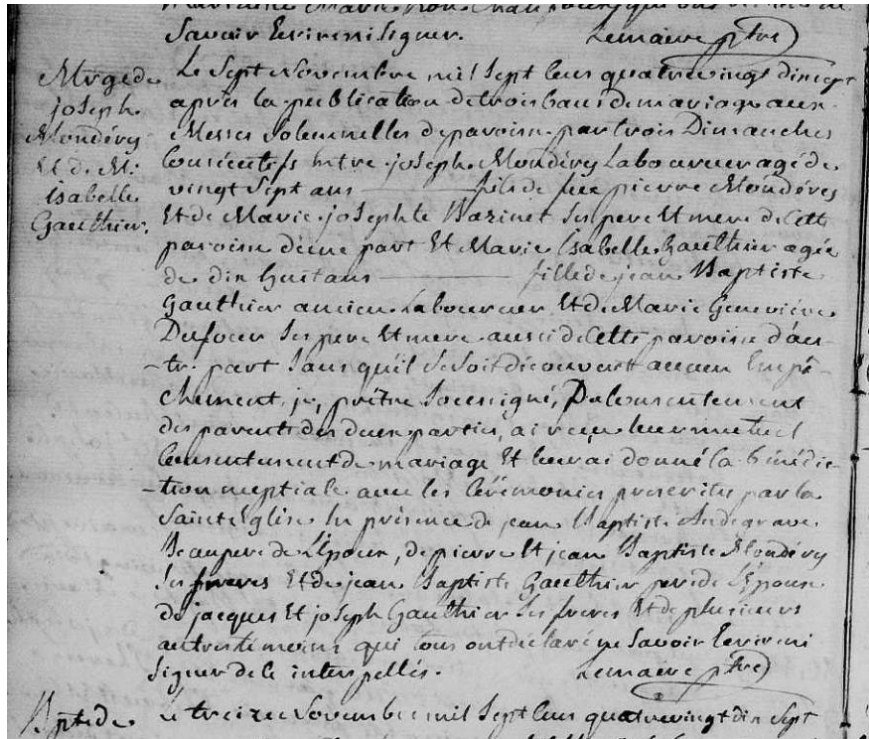 savoir Ecrire ni signer. Lemaire ptre
Mrge de
joseph
Mondéry
Et de M:
isabelle
Gauthier.
Le sept novembre mil sept cens quatrevingt dix sept
après la publication de trois bans de mariage aux
Messes solemnelles de paroisse par trois Dimanches
consécutifs Entre joseph Mondéry Laboureur agé de
vingt sept ans ——— fils de feu pierre Mondéry
Et de Marie josephte Bazinet ses pere Et mere de cette
paroisse d'une part Et Marie isabelle Gauthier agée
de dix huit ans ——— fille de jean Baptiste
Gauthier ancien Laboureur Et de Marie Geneviève
Dufour ses pere Et mere aussi de cette paroisse d'au-
-tre part sans qu'il se soit découvert aucun Empê-
chement, je, prêtre soussigné, Du consentement
des parents des deux parties, ai reçu leur mutuel
consentement de mariage Et leur ai donné la bénédic-
-tion nuptiale avec les cérémonies prescrites par la
sainte église En présence de jean Baptiste Andegrave
Beaupere de L'Epoux, de pierre Et jean Baptiste Mondéry
ses freres Et de jean Baptiste Gauthier pere de L'Epouse
de jacques Et joseph Gauthier ses freres Et de plusieurs
autres témoins qui tous ont déclaré ne savoir Ecrire ni
signer de ce interpellés. Lemaire ptre
Bpt de
Le treize novembre mil sept cens quatrevingt dix sept